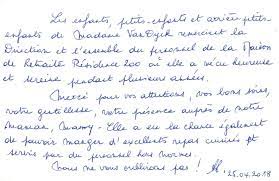 Les enfants, petits-enfants et arrière-petits-
enfants de Madame Van Dyck remercient la
Direction et l'ensemble du personnel de la Maison
de Retraite Résidence 200 où elle a vécu heureuse
et sereine pendant plusieurs années.
Merci pour vos attentions, vos bons soins,
votre gentillesse, votre présence auprès de notre
Maman, Mamy - Elle a eu la chance également
de pouvoir manger d'excellents repas cuisinés et
servis par du personnel hors normes.
Nous ne vous oublierons pas !
25.04.2018